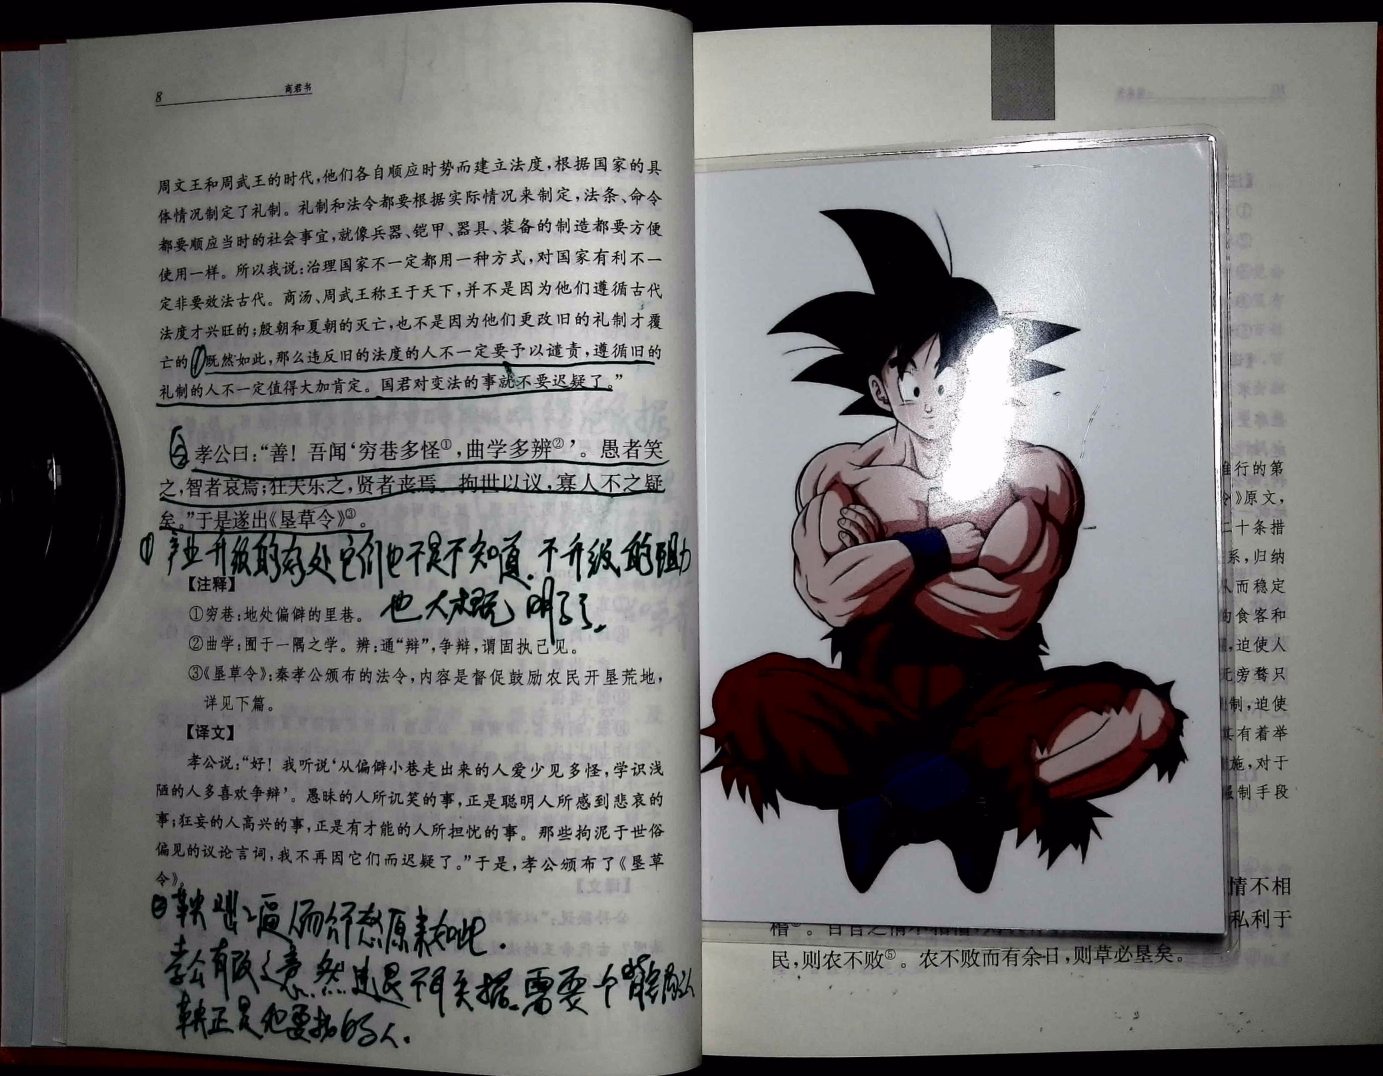 8
商君书
周文王和周武王的时代,他们各自顺应时势而建立法度,根据国家的具
体情况制定了礼制。礼制和法令都要根据实际情况来制定,法条、命令
都要顺应当时的社会事宜,就像兵器、铠甲、器具、装备的制造都要方便
使用一样。所以我说:治理国家不一定都用一种方式,对国家有利不一
定非要效法古代。商汤、周武王称王于天下,并不是因为他们遵循古代
法度才兴旺的;殷朝和夏朝的灭亡,也不是因为他们更改旧的礼制才覆
亡的①既然如此,那么违反旧的法度的人不一定要予以谴责,遵循旧的
礼制的人不一定值得大加肯定。国君对变法的事就不要迟疑了。”
孝公曰:“善!吾闻‘穷巷多怪①,曲学多辨②’。愚者笑
之,智者哀焉;狂夫乐之,贤者丧焉。拘世以议,寡人不之疑
矣。”于是遂出《垦草令》③。
① 产业升级的好处它们也不是不知道.不升级的阻力
也大概明了了。
【注释】
①穷巷:地处偏僻的里巷。
②曲学:囿于一隅之学。辨:通“辩”,争辩,谓固执己见。
③《垦草令》:秦孝公颁布的法令,内容是督促鼓励农民开垦荒地,
详见下篇。
【译文】
孝公说:“好!我听说‘从偏僻小巷走出来的人爱少见多怪,学识浅
陋的人多喜欢争辩’。愚昧的人所讥笑的事,正是聪明人所感到悲哀的
事;狂妄的人高兴的事,正是有才能的人所担忧的事。那些拘泥于世俗
偏见的议论言词,我不再因它们而迟疑了。”于是,孝公颁布了《垦草
令》。
原来如此.
孝公有改之意.然进退不再失据.需要一个
鞅正是他要找的人.
推行的第
令》原文,
二十条措
系,归纳
从而稳定
的食客和
,迫使人
无旁骛只
制,迫使
其有着举
措施,对于
强制手段
情不相
私利于
民,则农不败⑤。农不败而有余日,则草必垦矣。